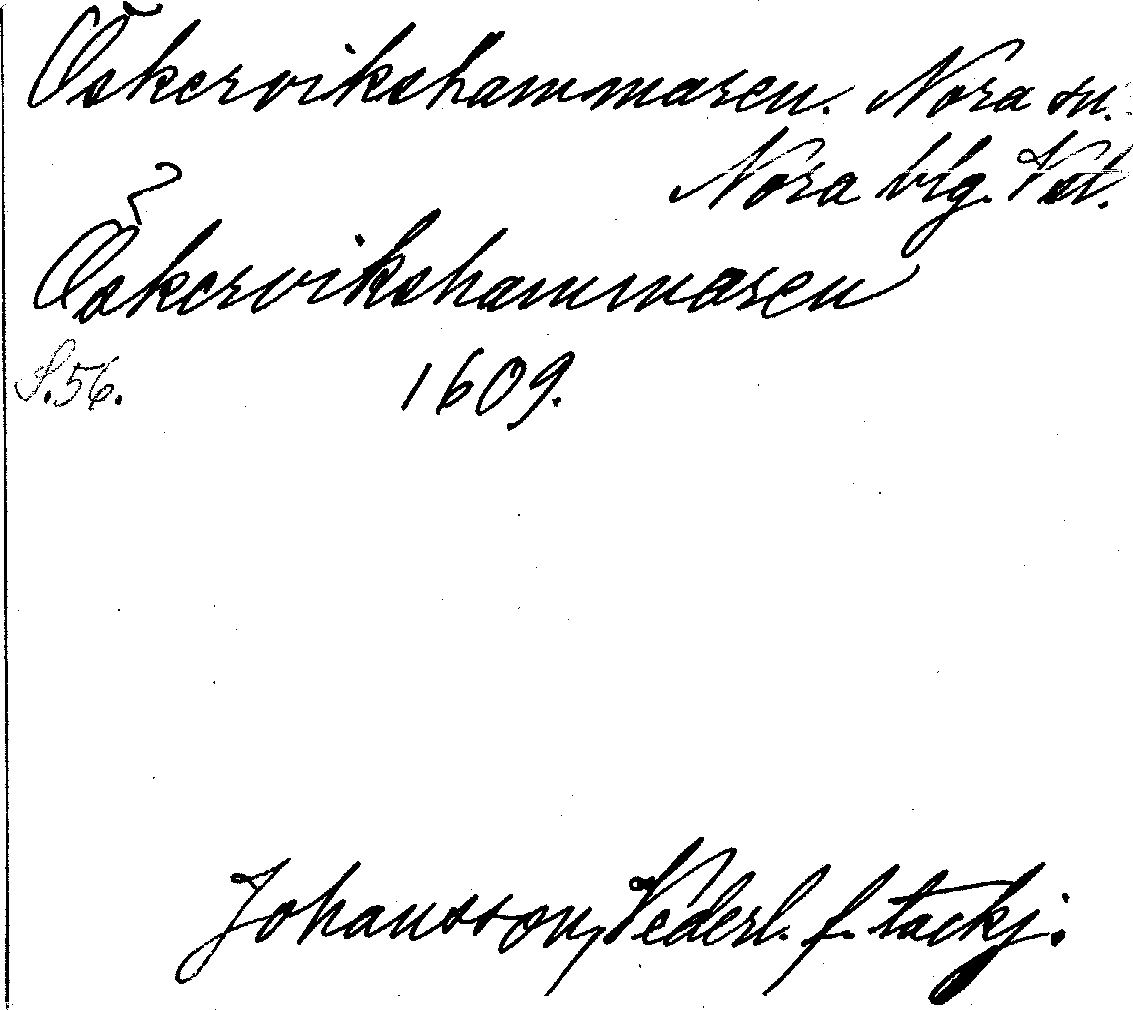 Öskervikshammaren. Nora sn.
Nora blg. Vstl.
Öskervikshammaren
S. 56. 1609.
Johansson, Vederl. f. tackj.